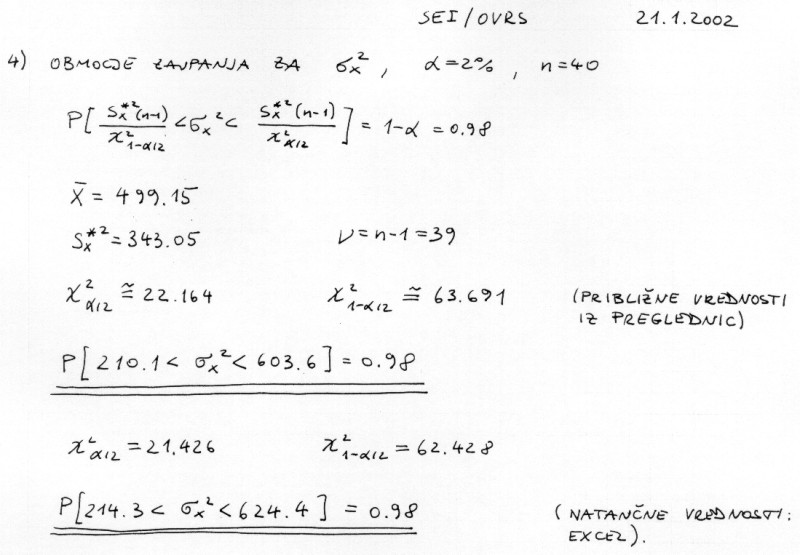 SEI/OVRS 21.1.2002
4) OBMOČJE ZAUPANJA ZA σx², α=2%, n=40
P[ Sx*²(n-1)/χ²1-α/2 < σx² < Sx*²(n-1)/χ²α/2 ] = 1-α = 0.98
X̄ = 499.15
Sx*² = 343.05 ν=n-1=39
χ²α/2 ≅ 22.164 χ²1-α/2 ≅ 63.691 (PRIBLIŽNE VREDNOSTI
IZ PREGLEDNIC)
P[210.1 < σx² < 603.6] = 0.98
χ²α/2 = 21.426 χ²1-α/2 = 62.428
P[214.3 < σx² < 624.4] = 0.98 (NATANČNE VREDNOSTI:
EXCEL).